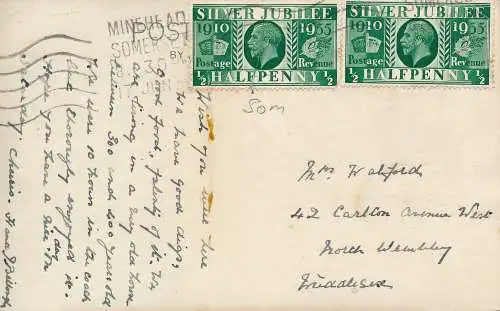 POST
MINEHEAD
SOMERSET
BY
30
JUN
SILVER JUBILEE
1910 1935
Postage Revenue
½ HALFPENNY ½
SILVER JUBILEE
1910 1935
Postage Revenue
½ HALFPENNY ½
Som
Wish you were here
We have good digs,
good food, plenty of it. We
are living in a very old town
between 300 and 400 years old
We were 10 hours in the coach
and thoroughly enjoyed it.
Hope you have a nice day on
Cheerio.
Mrs Walford
42 Carlton Avenue West
North Wembley
Middlesex